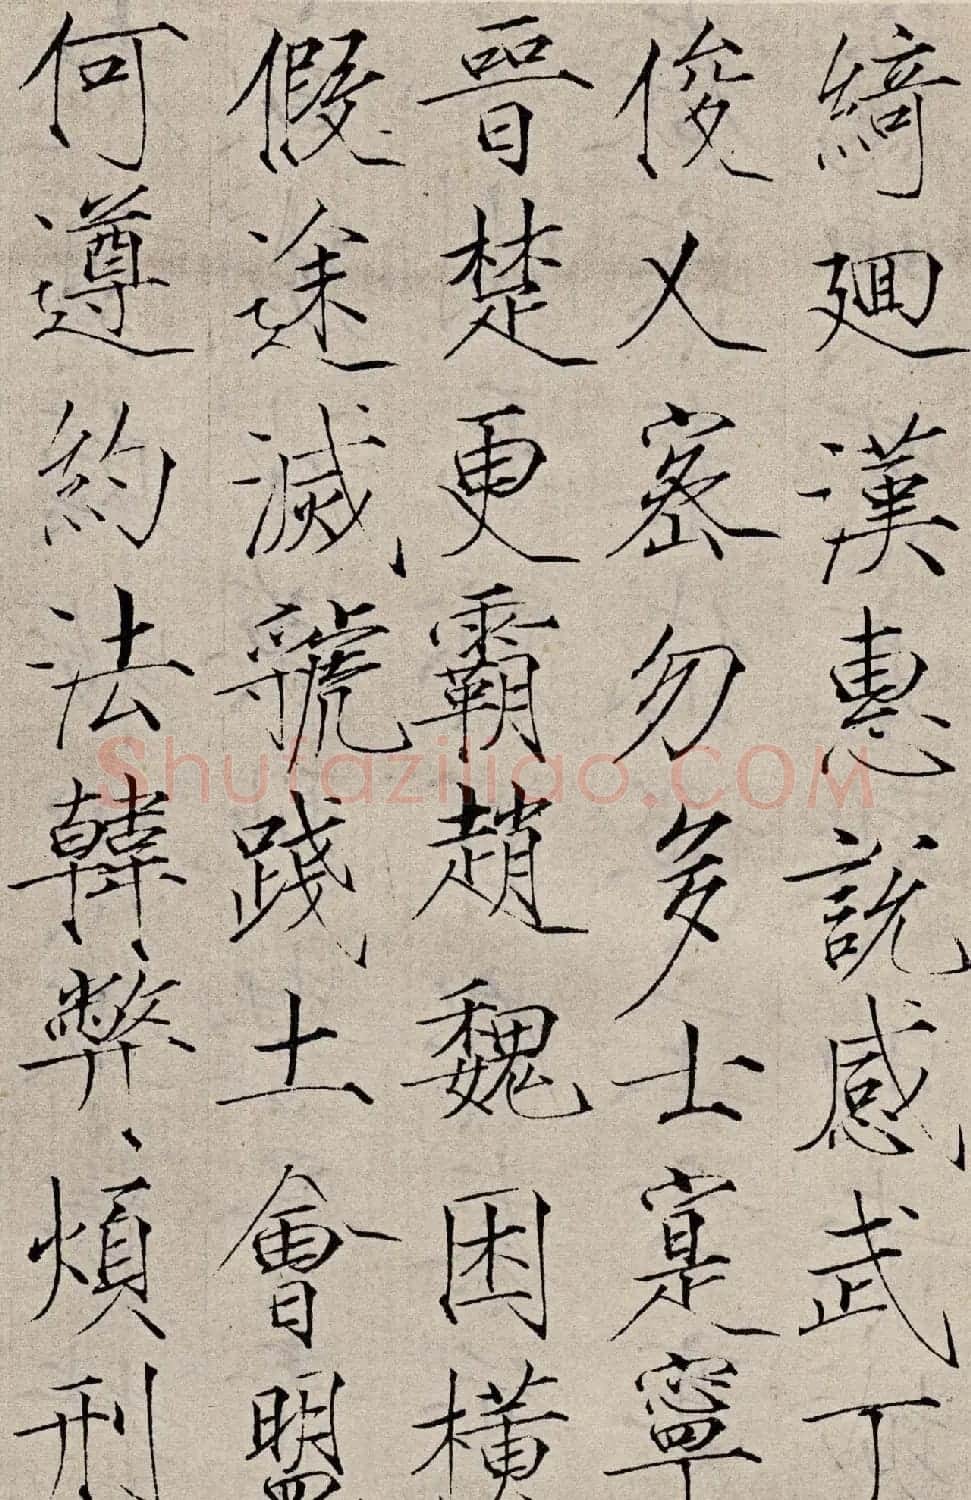 綺迴漢惠說感武丁
俊乂密勿多士寔寧
晉楚更霸趙魏困橫
假途滅虢踐土會盟
何遵約法韓弊煩刑
Shufaziliao.COM